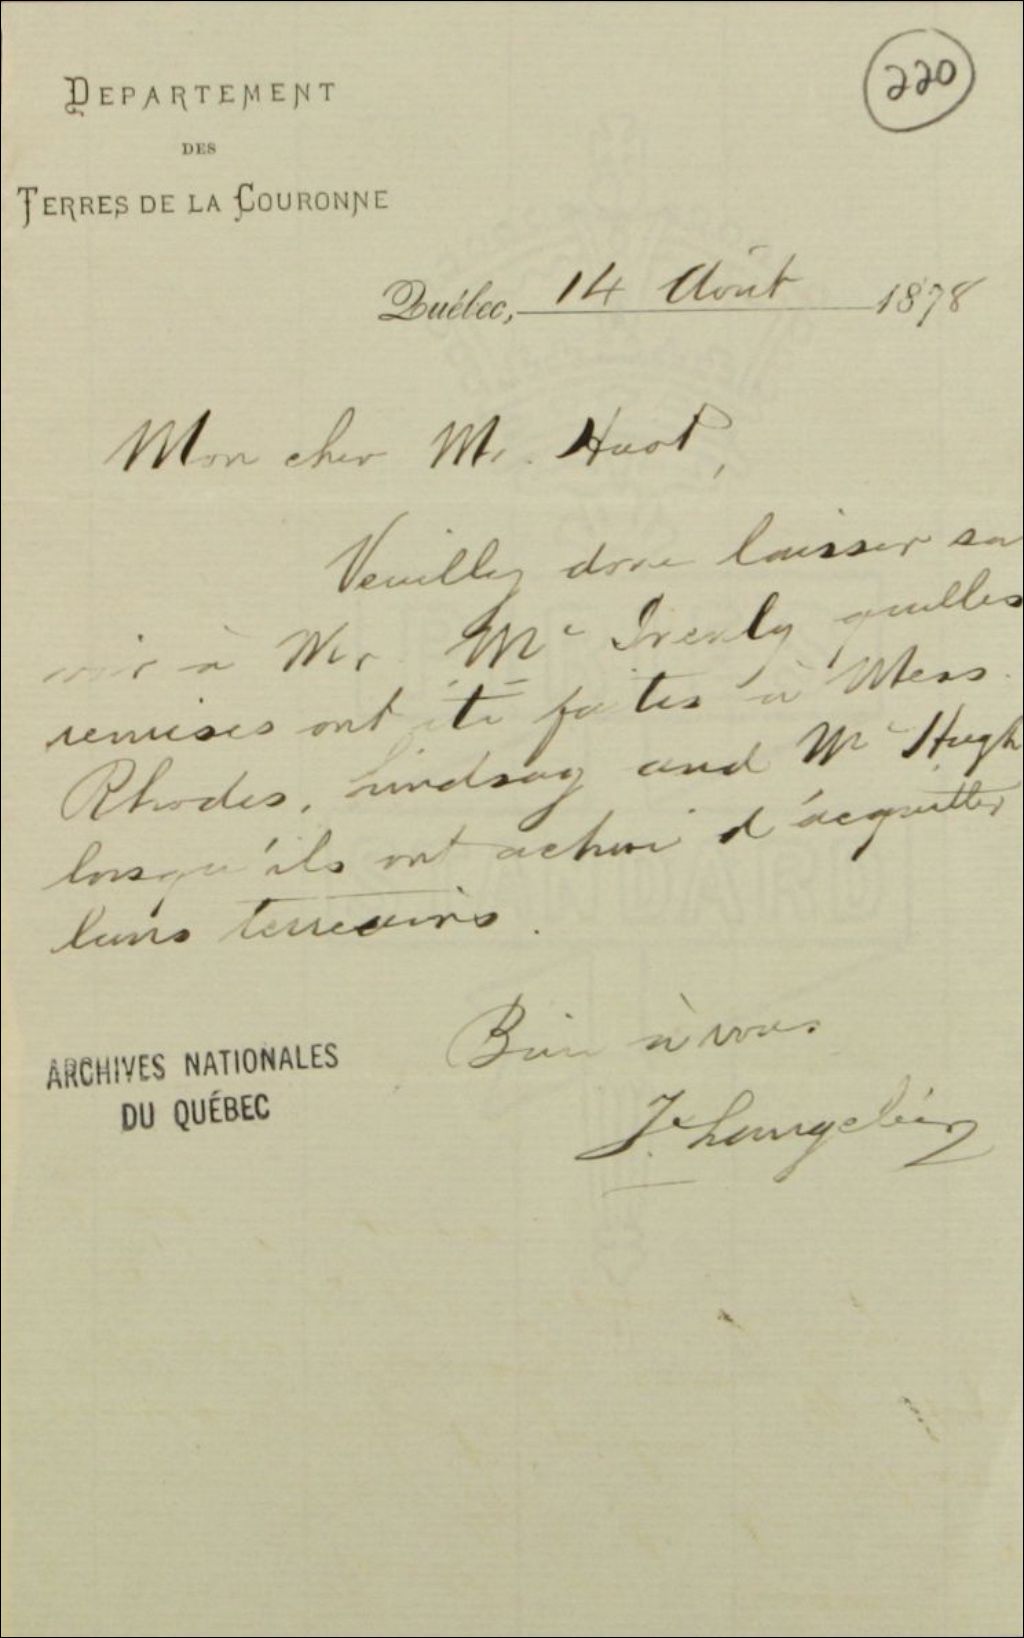 220
DEPARTEMENT
DES
TERRES DE LA COURONNE
Québec, 14 Août 1878
Mon cher Mr. Huot,
Veuillez donc laisser sa
voir à Mr. Mc quelles
remises ont été faites à Mess.
Rhodes, Lindsay and Mc Hugh
lorsqu'ils ont achevé d'acquitter
leurs terrains.
Bien à vous
J. Langelier
ARCHIVES NATIONALES
DU QUÉBEC